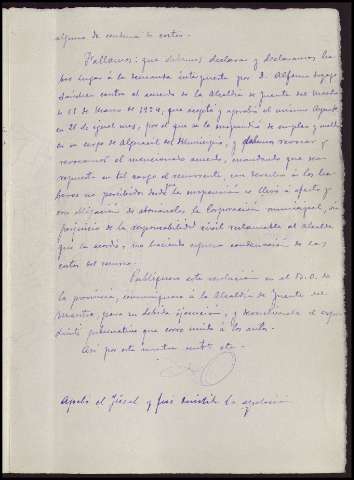 alguna de condena de costas.
Fallamos: que debemos declarar y declaramos ha-
ber lugar a la demanda interpuesta por D. Alfonso
Sánchez contra el acuerdo de la Alcaldía de Fuente del Maestre
de 21 de Marzo de 1924, que aceptó y aprobó el mismo Ayunt
en 28 de igual mes, por el que se le suspendió de empleo y sueldo
en su cargo de Alguacil del Municipio, y debemos revocar y
revocamos el mencionado acuerdo, mandando que sea
repuesto en tal cargo el recurrente, con derecho á los ha-
beres no percibidos desde que la suspensión se llevó a efecto y
con obligación de abonarlos la Corporación municipal, sin
perjuicio de la responsabilidad civil reclamable al Alcalde
que la acordó, no haciendo expresa condenación de las
costas del recurso.
Publíquese esta resolución en el B. O. de
la provincia, comuníquese á la Alcaldía de Fuente del
Maestre, para su debida ejecución, y devuélvasele el expe-
diente gubernativo que corre unido á los autos.
Así por esta nuestra sentª etc.
Apeló el Fiscal y fué la apelación